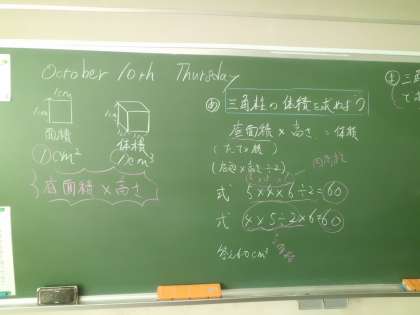 October 10th Thursday
1cm
1cm
面積
1cm²
1cm
体積
1cm³
底面積×高さ
め 三角柱の体積を求めよう
底面積×高さ=体積
(たて×横)
(底辺×高さ÷2)
式 5×4×6÷2=60
式 4×5÷2×6=60
答え60cm³
三角